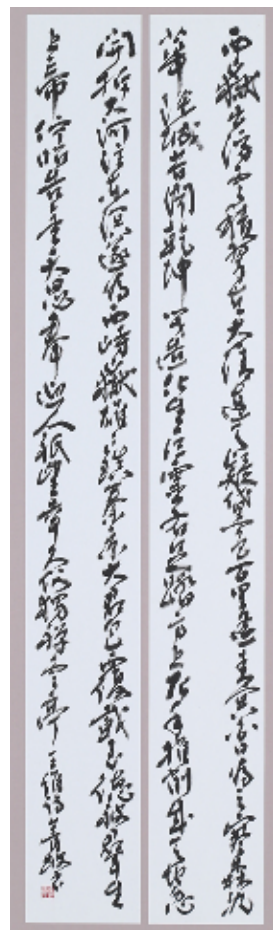 西嶽出浮雲積在太清連天疑黛色百里遙青冥白日為之寒森沉
華陰城昔聞乾坤閉造化生巨靈右足踏方止左手推削成天地忽
開拆大河注東溟遂為西峙嶽雄雄鎮秦京大君包覆載至德被群生
上帝佇昭告金天思奉迎人祇望幸久何獨禪云亭王維詩